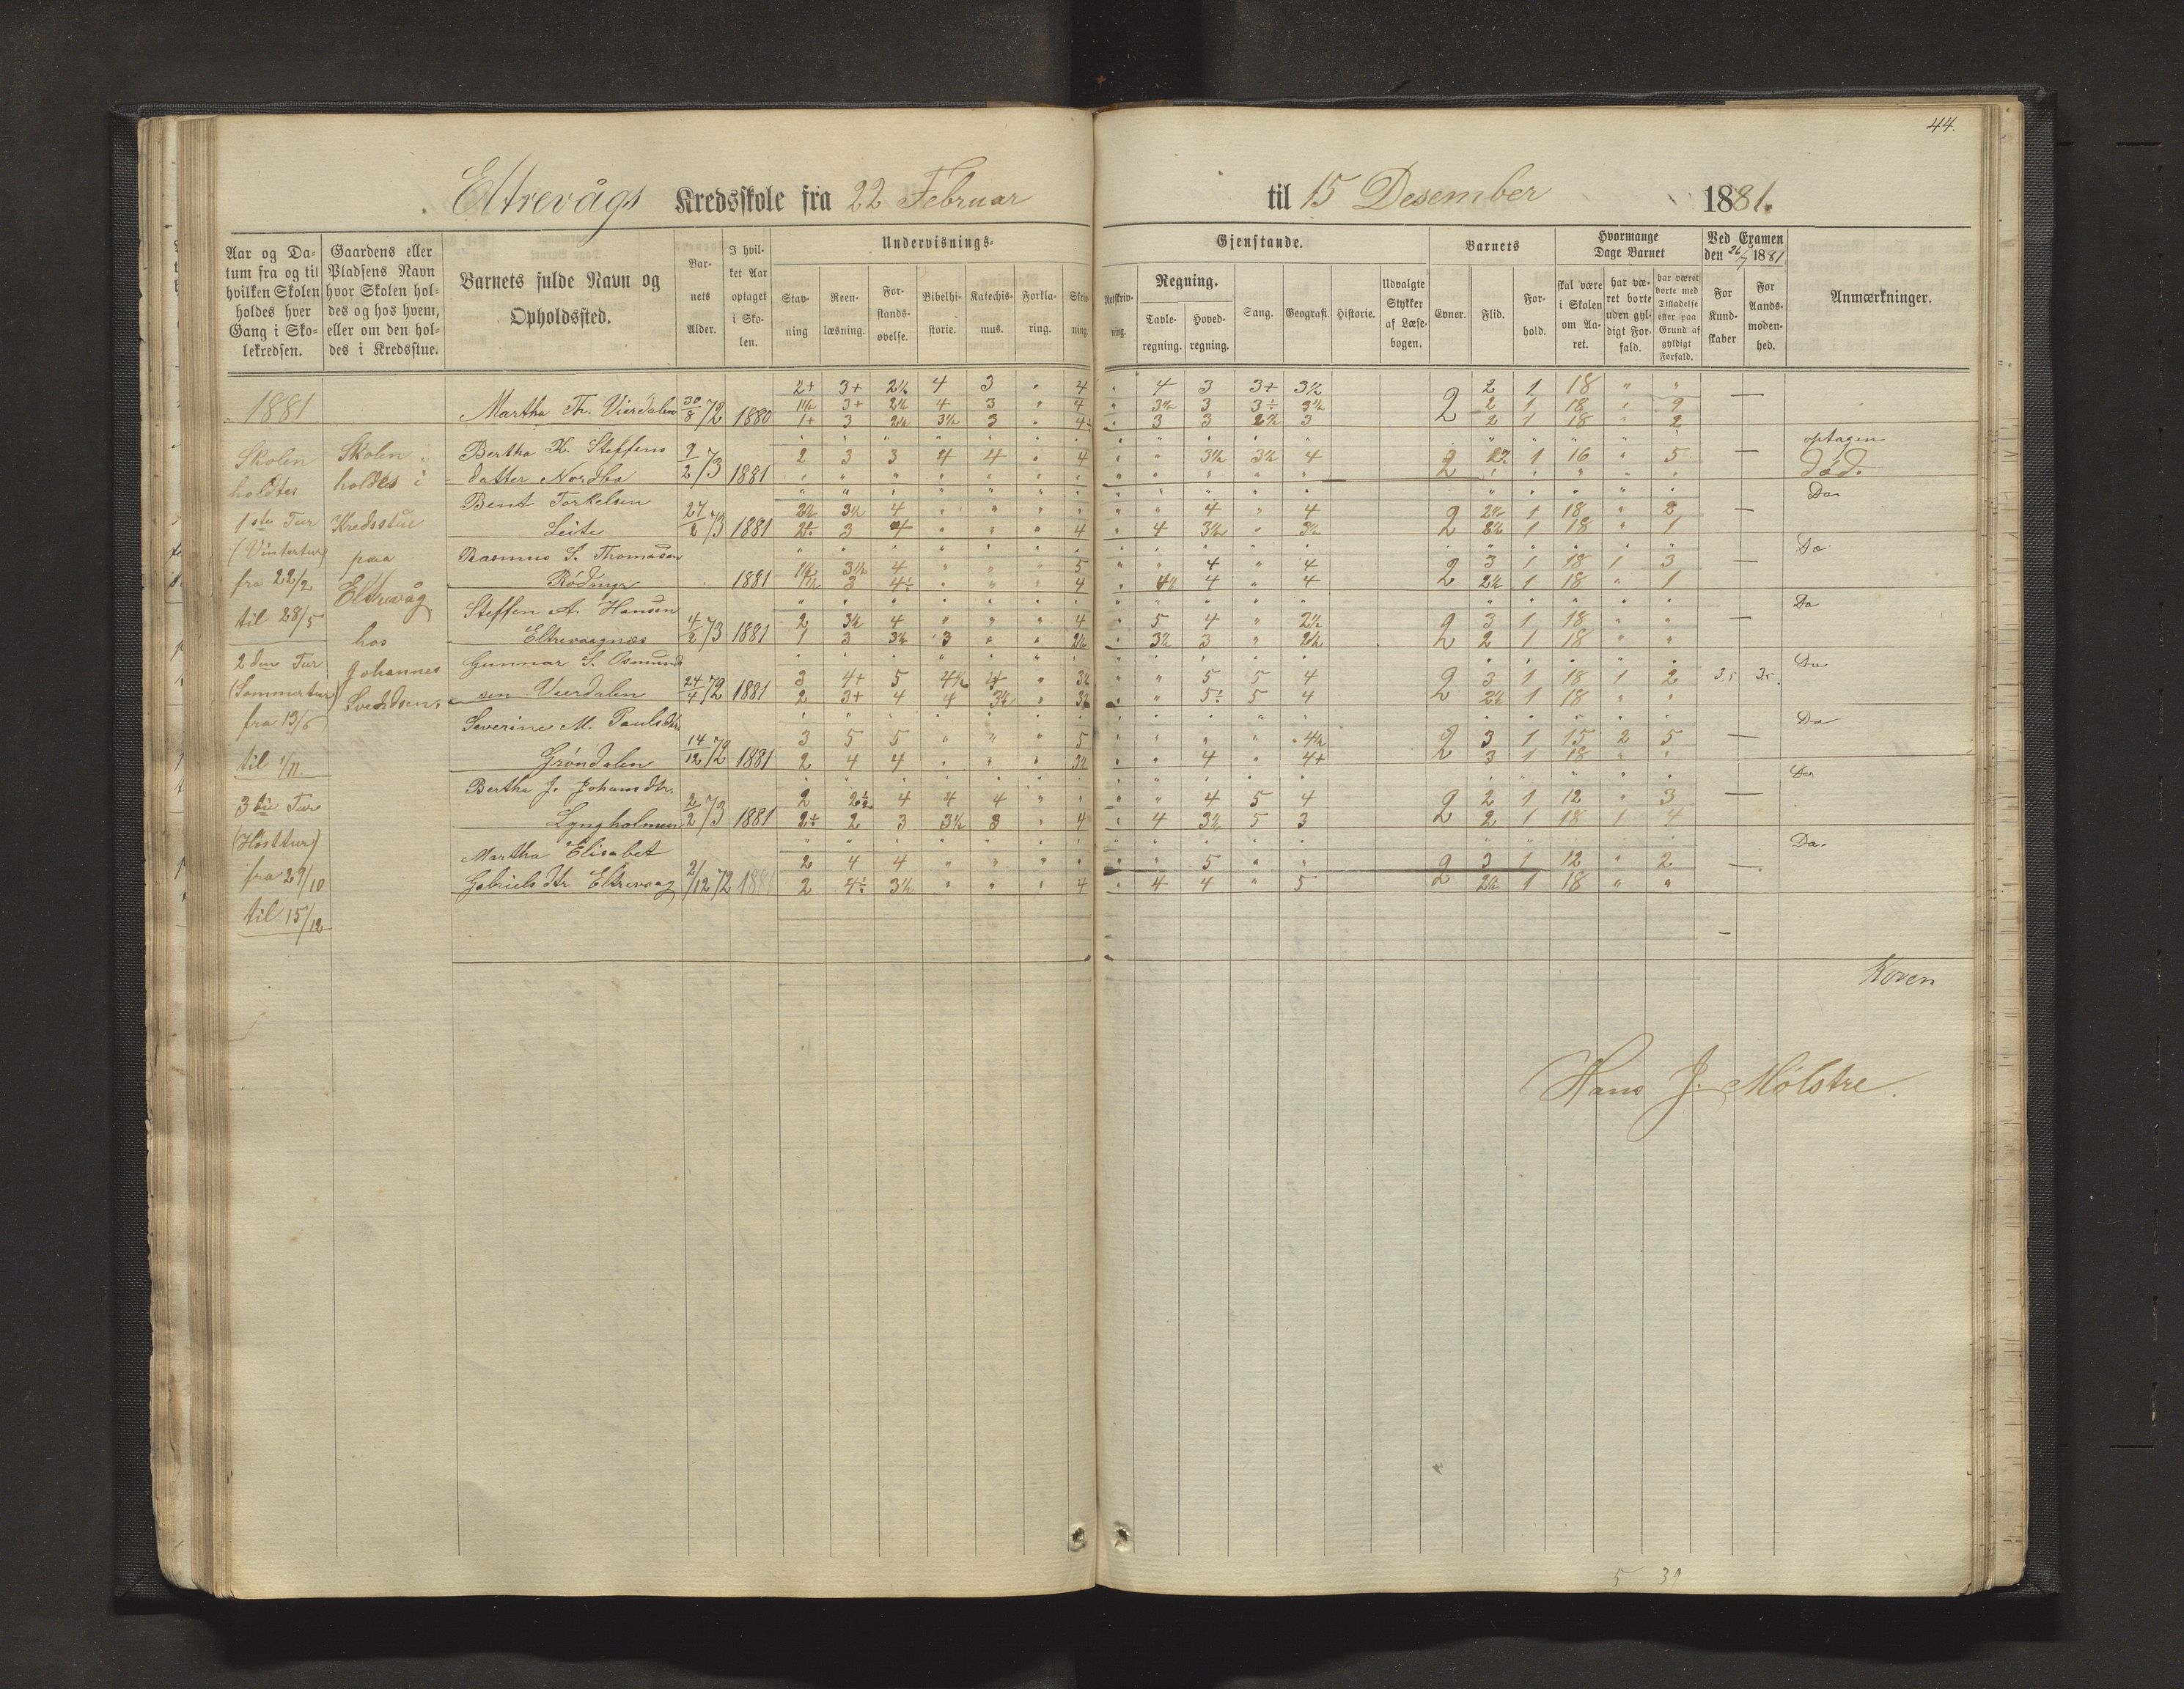 44.
Eltrevågs Kredsskole fra 22 Februar til 15 Desember 1881.
Aar og Da-
tum fra og til
hvilken Skolen
holdes hver
Gang i Sko-
lekredsen.
Gaardens eller
Pladsens Navn
hvor Skolen hol-
des og hos hvem,
eller om den hol-
des i Kredsstue.
Barnets fulde Navn og
Opholdssted.
Bar-
nets
Alder.
I hvil-
ket Aar
optaget
i Sko-
len.
Undervisnings-
Stav-
ning
Reen-
læsning.
For-
stands-
øvelse.
Bibelhi-
storie.
Katechis-
mus.
Forkla-
ring.
Skriv-
ning.
Gjenstande.
Retskriv-
ning.
Regning.
Tavle-
regning.
Hoved-
regning.
Sang.
Geografi.
Historie.
Udvalgte
Stykker
af Læse-
bogen.
Barnets
Evner.
Flid.
For-
hold.
Hvormange
Dage Barnet
skal være
i Skolen
om Aa-
ret.
har væ-
ret borte
uden gyl-
digt For-
fald.
har været
borte med
Tilladelse
eller paa
Grund af
gyldigt
Forfald.
Ved Examen
den 26/7 1881
For
Kund-
skaber
For
Aands-
moden-
hed.
Anmærkninger.
1881
Skolen
holdtes
1ste Tur
(Vintertur)
fra 22/2
til 28/5
2den Tur
(Sommertur)
fra 13/6
til 1/11.
3die Tur
(Hösttur)
fra 29/10
til 15/12
Skolen
holdes i
Kredsstue
paa
Eltrevåg
hos
Johannes
Svendsen.
Martha Th. Vierdalen 30/8 72 1880
2+ 3+ 2½ 4 3 " 4 " 4 3 3+ 3½ 2 2 1 18 " "
1½ 3+ 2½ 4 3 " 4 " 3½ 3 3÷ 3½ 2 1 18 " 9
1+ 3 2½ 3½ 3 " 4÷ " 3 3 2½ 3 2 1 18 " 2
Bertha K. Steffens
datter Nordbø 9/2 73 1881
2 3 3 4 4 " 4 " " 3½ 3½ 4 2 2½ 1 16 " 5 —
optagen
Død.
Bent Torkelsen
Leite 27/2 73 1881
2½ 3½ 4 " " " " " " 4 " 4 2 2½ 1 18 " 2 —
2÷ 3 4 " " " 4 " 4 3½ " 3½ 2 2½ 1 18 " 1
Do.
Rasmus S. Thomasen
1881
1½ 3½ 4 " " " 5 " " 4 " 4 2 3 1 18 1 3 —
1½ 3 4÷ " " " 4 " 4½ 4 " 4 2 2½ 1 18 " 1
Do
Steffen A. Hansen
Eltrevaagnæs 4/2 73 1881
2 3½ 4 " " " 4 " 5 4 " 2½ 2 3 1 18 " " —
1 3 3½ 3 " " 2½ " 3½ 3 " 2½ 2 2 1 18 " "
Do
Gunnar S. Osmund
sen Vierdalen 24/4 72 1881
3 4+ 5 4½ 4 " 3½ " " 5 5 4 2 3 1 18 1 2 3.5 3.5
2 3+ 4 4 3½ " 3½ " " 5÷ 5 4 2 2½ 1 18 " "
Do
Severine M. Paulsdtr
Gröndalen 14/12 72 1881
3 5 5 " " " 5 " " " " 4½ 2 3 1 15 2 5 —
2 4 4 " " " 3½ " " 4 " 4+ 2 3 1 18 " "
Do
Bertha J. Johansdtr.
Lyngholmen 2/2 73 1881
2 2½ 4 4 4 " " " " 4 5 4 2 2 1 12 " 3 —
2÷ 2 3 3½ 3 " 4 " 4 3½ 5 3 2 2 1 18 1 4
Do
Martha Elisabet
Gabrielsdtr Eltrevaag 2/12 72 1881
2 4 4 " " " " " " 5 " " 2 3 1 12 " 2 —
2 4÷ 3½ " " " 4 " 4 4 " 5 2 2½ 1 18 " "
Do.
Koren
Hans J. Mølstre.
5 39